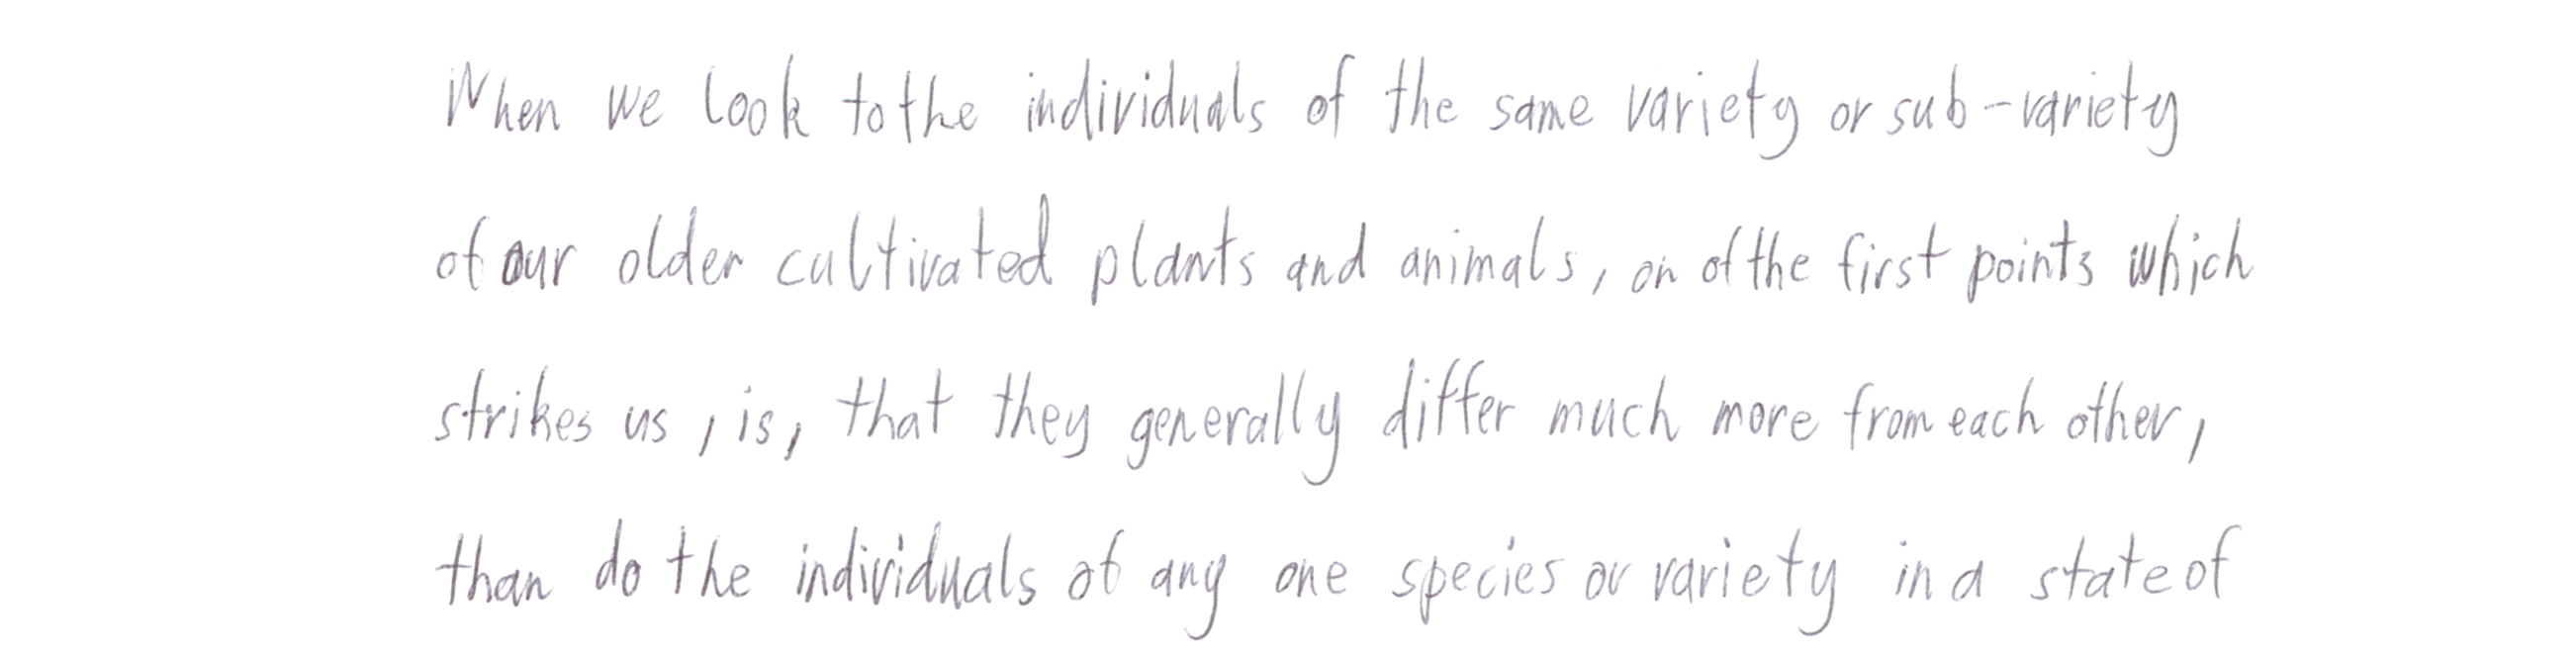 When we look to the individuals of the same variety or sub-variety
of our older cultivated plants and animals, on of the first points which
strikes us, is, that they generally differ much more from each other,
than do the individuals of any one species or variety in a state of